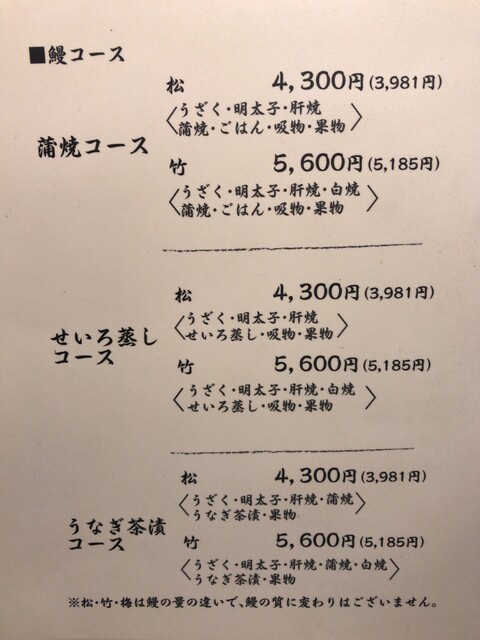 ■鰻コース
蒲焼コース
松 4,300円(3,981円)
〈うざく・明太子・肝焼
蒲焼・ごはん・吸物・果物〉
竹 5,600円(5,185円)
〈うざく・明太子・肝焼・白焼
蒲焼・ごはん・吸物・果物〉
せいろ蒸し
コース
松 4,300円(3,981円)
〈うざく・明太子・肝焼
せいろ蒸し・吸物・果物〉
竹 5,600円(5,185円)
〈うざく・明太子・肝焼・白焼
せいろ蒸し・吸物・果物〉
うなぎ茶漬
コース
松 4,300円(3,981円)
〈うざく・明太子・肝焼・蒲焼
うなぎ茶漬・果物〉
竹 5,600円(5,185円)
〈うざく・明太子・肝焼・蒲焼・白焼
うなぎ茶漬・果物〉
※松・竹・梅は鰻の量の違いで、鰻の質に変わりはございません。